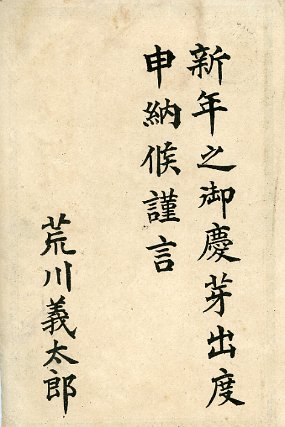 新年之御慶芽出度
申納候謹言
荒川義太郎